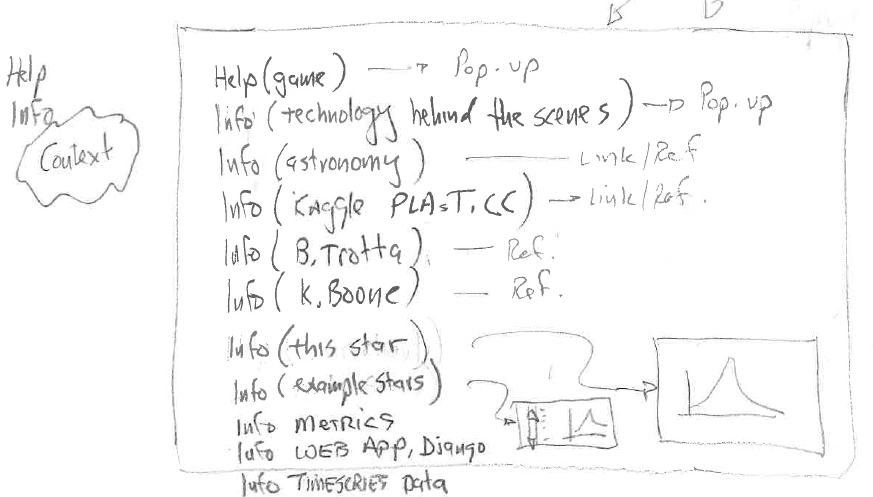 Help
Info
Context
Help (game) → Pop-up
Info (technology behind the scenes) → Pop-up
Info (astronomy) — Link/Ref
Info (Kaggle PLAsTiCC) → Link/Ref.
Info (B. Trotta) — Ref.
Info (K. Boone) — Ref.
Info (this star)
Info (example stars)
Info METRICS
Info WEB APP, Django
Info TIMESERIES Data